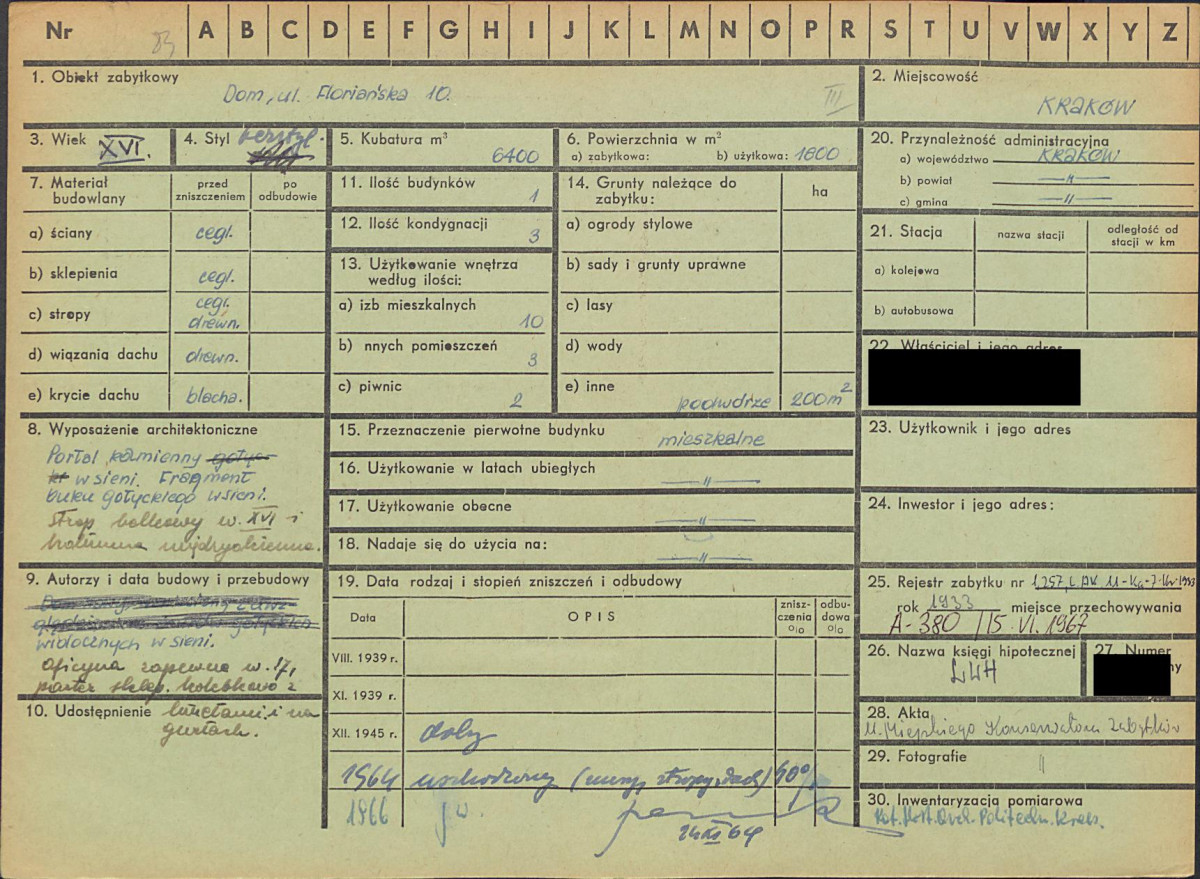 Nr 83 A B C D E F G H I J K L M N O P R S T U V W X Y Z
1. Obiekt zabytkowy
Dom, ul. Floriańska 10.
III
2. Miejscowość
KRAKÓW
3. Wiek XVI.
4. Styl bezstyl.
5. Kubatura m³
6400
6. Powierzchnia w m²
a) zabytkowa: b) użytkowa: 1800
20. Przynależność administracyjna
a) województwo KRAKÓW
b) powiat —"—
c) gmina —"—
7. Materiał budowlany
przed zniszczeniem
po odbudowie
a) ściany cegl.
b) sklepienia cegl.
c) stropy cegl. drewn.
d) wiązania dachu drewn.
e) krycie dachu blacha.
11. Ilość budynków 1
12. Ilość kondygnacji 3
13. Użytkowanie wnętrza według ilości:
a) izb mieszkalnych 10
b) nnych pomieszczeń 3
c) piwnic 2
14. Grunty należące do zabytku:
ha
a) ogrody stylowe
b) sady i grunty uprawne
c) lasy
d) wody
e) inne podwórze 200 m²
21. Stacja
nazwa stacji
odległość od stacji w km
a) kolejowa
b) autobusowa
22. Właściciel i jego adres
8. Wyposażenie architektoniczne
Portal kamienny
w sieni. Fragment
łuku gotyckiego w sieni.
strop belkowy w. XVI i
kolumna międzyokienna.
15. Przeznaczenie pierwotne budynku mieszkalne
16. Użytkowanie w latach ubiegłych —"—
17. Użytkowanie obecne —"—
18. Nadaje się do użycia na: —"—
23. Użytkownik i jego adres
24. Inwestor i jego adres:
9. Autorzy i data budowy i przebudowy
widocznych w sieni.
oficyna zapewne w. 17,
parter sklep. kolebkowo z
10. Udostępnienie lunetami i na
gurtach.
19. Data rodzaj i stopień zniszczeń i odbudowy
Data
OPIS
znisz- czenia %
odbu- dowa %
VIII. 1939 r.
XI. 1939 r.
XII. 1945 r. dobry
1964 uszkodzony (mury, stropy, dach)
1966 j.w.
64
25. Rejestr zabytku nr
rok 1933 miejsce przechowywania
A-380 /15. VI. 1967
26. Nazwa księgi hipotecznej
LWH
27. Numer
28. Akta
U. Miejskiego Konserwatora Zabytków
29. Fotografie "
30. Inwentaryzacja pomiarowa
Politechn. Krak.